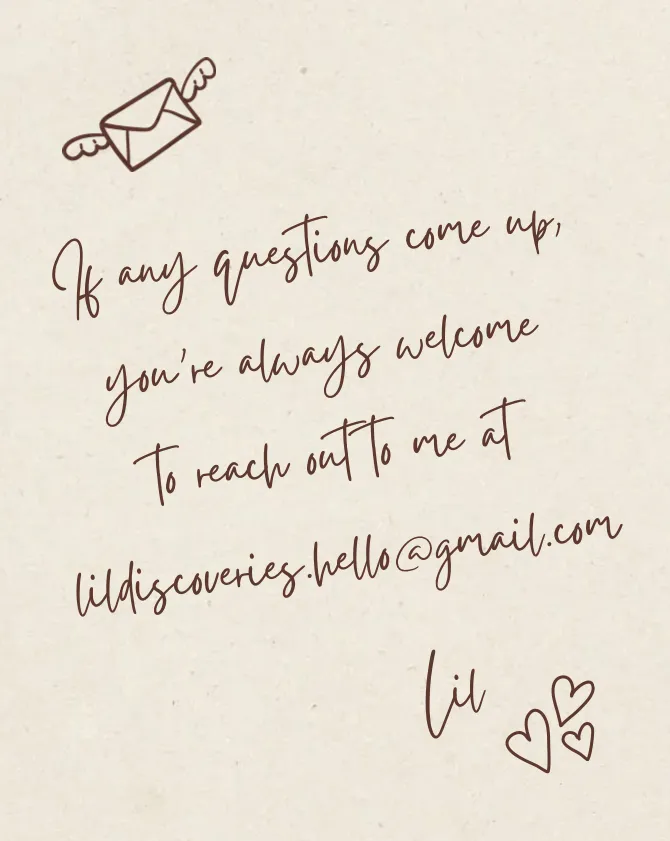 If any questions come up,
you're always welcome
to reach out to me at
lildiscoveries.hello@gmail.com
Lil